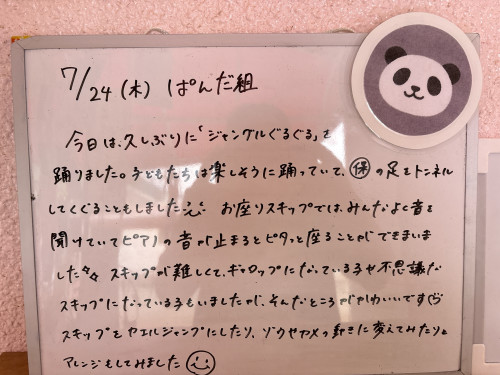 7/24(木) ぱんだ組
今日は、久しぶりに「ジャングルぐるぐる」を
踊りました。子どもたちは楽しそうに踊っていて、保の足をトンネルに
してくぐることもしました お座りスキップでは、みんなよく音を
聞けていてピアノの音が止まるとピタッと座ることができていま
した スキップが難しくて、ギャロップになっている子や不思議な
スキップになっている子もいましたが、そんなところがかわいいです
スキップをカエルジャンプにしたり、ゾウやアメの動きに変えてみたりと
アレンジもしてみました